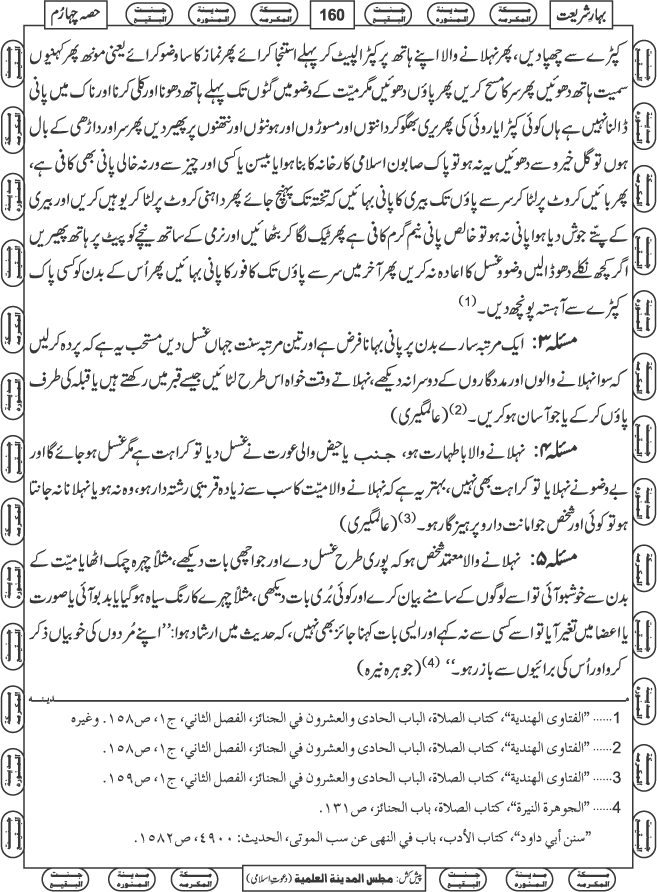 بہارِ شریعت
160
حصہ چہارم
کپڑے سے چھپا دیں، پھر نہلانے والا اپنے ہاتھ پر کپڑا لپیٹ کر پہلے استنجا کرائے پھر نماز کا سا وضو کرائے یعنی مونھ پھر کہنیوں
سمیت ہاتھ دھوئیں پھر سر کا مسح کریں پھر پاؤں دھوئیں مگر میّت کے وضو میں گٹوں تک پہلے ہاتھ دھونا اور کلی کرنا اور ناک میں پانی
ڈالنا نہیں ہے ہاں کوئی کپڑا یا روئی کی پھریری بھگو کر دانتوں اور مسوڑوں اور ہونٹوں اور نتھنوں پر پھیر دیں پھر سر اور داڑھی کے بال
ہوں تو گل خیرو سے دھوئیں یہ نہ ہو تو پاک صابون اسلامی کارخانہ کا بنا ہوا یا بیسن یا کسی اور چیز سے ورنہ خالی پانی بھی کافی ہے،
پھر بائیں کروٹ پر لٹا کر سر سے پاؤں تک بیری کا پانی بہائیں کہ تختہ تک پہنچ جائے پھر داہنی کروٹ پر لٹا کر یوہیں کریں اور بیری
کے پتّے جوش دیا ہوا پانی نہ ہو تو خالص پانی نیم گرم کافی ہے پھر ٹیک لگا کر بٹھائیں اور نرمی کے ساتھ نیچے کو پیٹ پر ہاتھ پھیریں
اگر کچھ نکلے دھو ڈالیں وضو و غسل کا اعادہ نہ کریں پھر آخر میں سر سے پاؤں تک کافور کا پانی بہائیں پھر اُس کے بدن کو کسی پاک
کپڑے سے آہستہ پونچھ دیں۔ (1)
مسئلہ ۳: ایک مرتبہ سارے بدن پر پانی بہانا فرض ہے اور تین مرتبہ سنت جہاں غسل دیں مستحب یہ ہے کہ پردہ کر لیں
کہ سوا نہلانے والوں اور مددگاروں کے دوسرا نہ دیکھے، نہلاتے وقت خواہ اس طرح لٹائیں جیسے قبر میں رکھتے ہیں یا قبلہ کی طرف
پاؤں کر کے یا جو آسان ہو کریں۔ (2) (عالمگیری)
مسئلہ ۴: نہلانے والا با طہارت ہو، جنب یا حیض والی عورت نے غسل دیا تو کراہت ہے مگر غسل ہو جائے گا اور
بے وضو نے نہلایا تو کراہت بھی نہیں، بہتر یہ ہے کہ نہلانے والا میّت کا سب سے زیادہ قریبی رشتہ دار ہو، وہ نہ ہو یا نہلانا نہ جانتا
ہو تو کوئی اور شخص جو امانت دار و پرہیزگار ہو۔ (3) (عالمگیری)
مسئلہ ۵: نہلانے والا معتمد شخص ہو کہ پوری طرح غسل دے اور جو اچھی بات دیکھے، مثلاً چہرہ چمک اٹھا یا میّت کے
بدن سے خوشبو آئی تو اسے لوگوں کے سامنے بیان کرے اور کوئی بُری بات دیکھی، مثلاً چہرے کا رنگ سیاہ ہو گیا یا بدبو آئی یا صورت
یا اعضا میں تغیر آیا تو اسے کسی سے نہ کہے اور ایسی بات کہنا جائز بھی نہیں، کہ حدیث میں ارشاد ہوا: ''اپنے مُردوں کی خوبیاں ذکر
کرو اور اُس کی برائیوں سے باز رہو۔'' (4) (جوہرہ نیرہ)
مدینہ
1...... "الفتاوى الهندية"، كتاب الصلاة، الباب الحادى والعشرون في الجنائز، الفصل الثاني، ج١، ص١٥٨. وغيره
2...... "الفتاوى الهندية"، كتاب الصلاة، الباب الحادى والعشرون في الجنائز، الفصل الثاني، ج١، ص١٥٨.
3...... "الفتاوى الهندية"، كتاب الصلاة، الباب الحادى والعشرون في الجنائز، الفصل الثاني، ج١، ص١٥٩.
4...... "الجوهرة النيرة"، كتاب الصلاة، باب الجنائز، ص١٣١.
"سنن أبي داود"، كتاب الأدب، باب في النهى عن سب الموتى، الحديث: ٤٩٠٠، ص١٥٨٢.
پیش کش: مجلس المدينة العلمية (دعوتِ اسلامی)